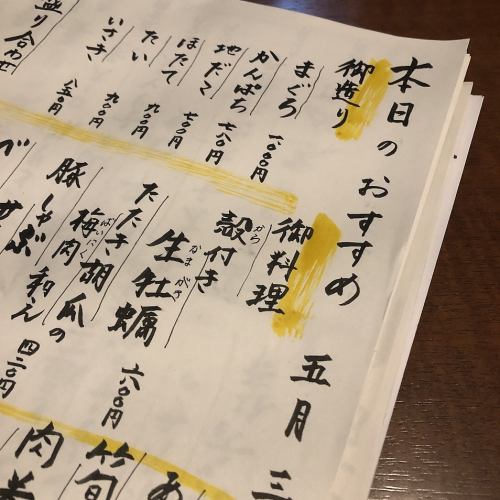 本日のおすすめ 五月三
御造り
まぐろ 一〇〇〇円
かんぱち 七八〇円
地だこ 七〇〇円
ほたて 九〇〇円
たい 九〇〇円
いさき 八五〇円
盛り合わせ
御料理
殻付き
から
生牡蠣 六〇〇円
かき
たたき胡瓜の
梅肉和え 四二〇円
ばいにく
豚しゃぶ
旬
肉